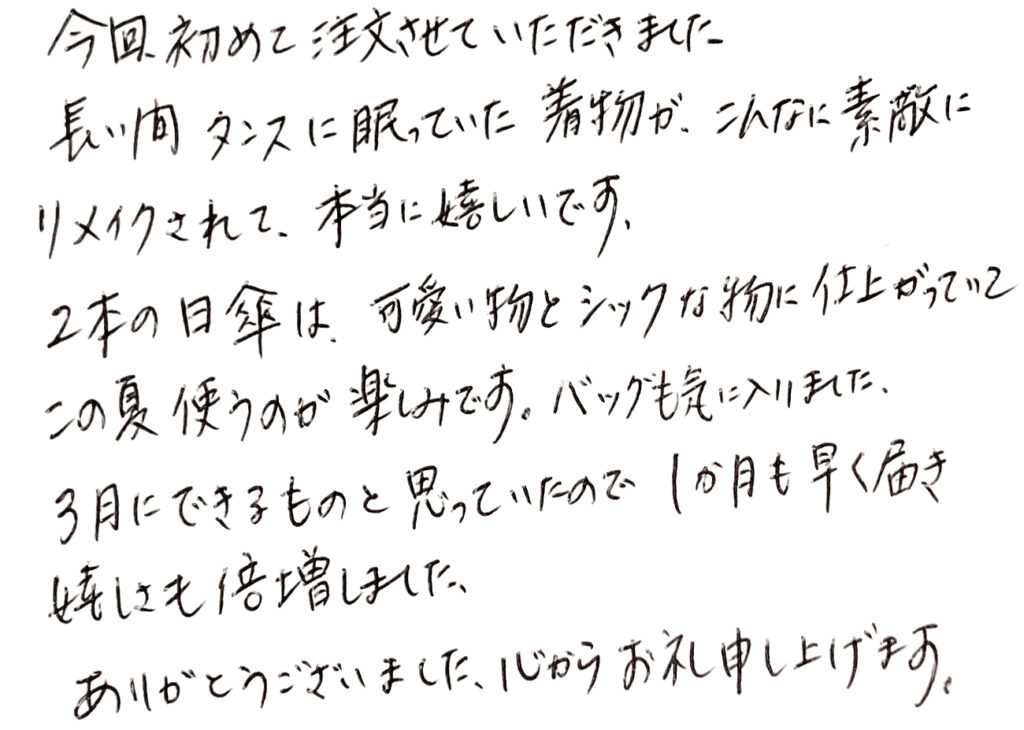 今回、初めて注文させていただきました
長い間タンスに眠っていた着物が、こんなに素敵に
リメイクされて、本当に嬉しいです、
2本の日傘は、可愛い物とシックな物に仕上がっていて
この夏使うのが楽しみです。バッグも気に入りました、
3月にできるものと思っていたので1か月も早く届き
嬉しさも倍増しました、
ありがとうございました、心からお礼申し上げます。